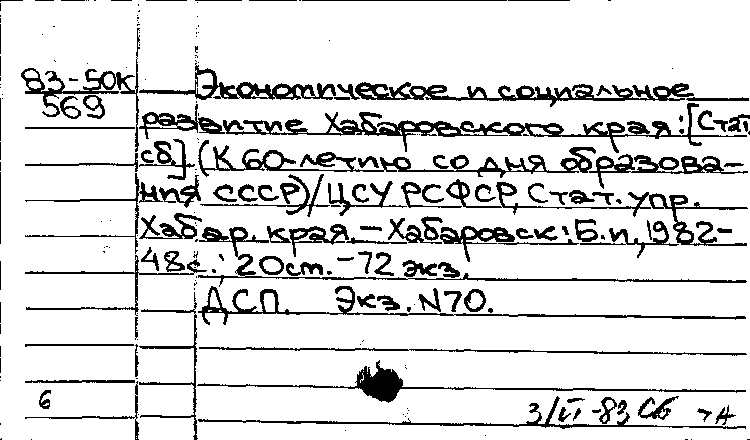 83-50к
569
Экономическое и социальное
развитие Хабаровского края: [Стат.
сб.] (К 60-летию со дня образова-
ния СССР) / ЦСУ РСФСР, Стат. упр.
Хабар. края. - Хабаровск: Б.и., 1982-
48с.; 20см. - 72 экз.
ДСП. Экз. N70.
6
3/VI-83 Сб